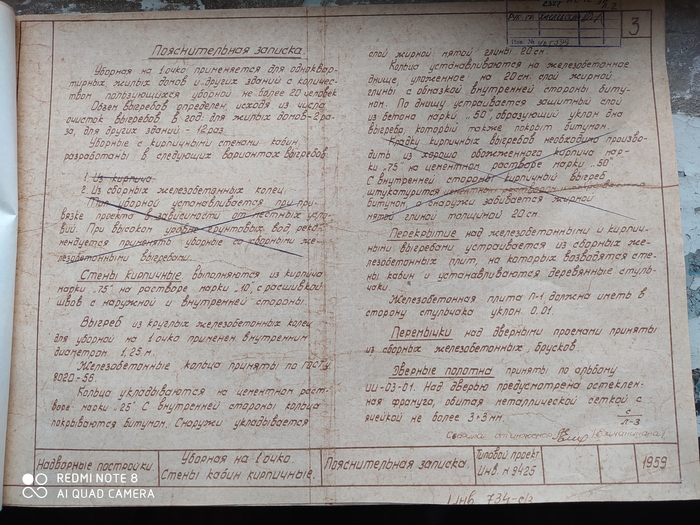 3
Пояснительная записка.
Уборная на 1 очко применяется для одноквар-
тирных жилых домов и других зданий с количес-
твом пользующихся уборной не более 20 человек
Объем выгребов определен, исходя из числа
очисток выгребов в год: для жилых домов - 2 ра-
за, для других зданий - 12 раз.
Уборные с кирпичными стенами кабин
разработаны в следующих вариантах выгребов:
1. Из кирпича.
2. Из сборных железобетонных колец.
Тип уборной устанавливается при при-
вязке проекта в зависимости от местных усло-
вий. При высоком уровне грунтовых вод, реко-
мендуется применять уборные со сборными же-
лезобетонными выгребами.
Стены кирпичные выполняются из кирпича
марки „75" на растворе марки „10", с расшивкой
швов с наружной и внутренней стороны.
Выгреб из круглых железобетонных колец
для уборной на 1 очко применен внутренним
диаметром 1,25 м.
Железобетонные кольца приняты по ГОСТу
8020-56.
Кольца укладываются на цементном раст-
воре марки „25". С внутренней стороны кольца
покрываются битумом. Снаружи укладывается
слой жирной мятой глины 20 см.
Кольца устанавливаются на железобетонное
днище, уложенное на 20 см. слой жирной
глины с обмазкой внутренней стороны биту-
мом. По днищу устраивается защитный слой
из бетона марки „50", образующий уклон дна
выгреба, который также покрыт битумом.
Кладку кирпичных выгребов необходимо произво-
дить из хорошо обожженного кирпича мар-
ки „75" на цементном растворе марки „50"
С внутренней стороны кирпичный выгреб
штукатурится цементным раствором
битумом, а снаружи забивается жирной
мятой глиной толщиной 20 см.
Перекрытие над железобетонными и кирпич-
ными выгребами устраивается из сборных же-
лезобетонных плит, на которых возводятся сте-
ны кабин и устанавливаются деревянные стуль-
чаки.
Железобетонная плита П-1 должна иметь в
сторону стульчака уклон 0,01.
Перемычки над дверными проемами приняты
из сборных железобетонных брусков.
Дверные полотна приняты по альбому
ИИ-03-01. Над дверью предусмотрена остеклен-
ная фрамуга, обитая металлической сеткой с
ячейкой не более 3×3 мм.
с
л-3
Надворные постройки.
Уборная на 1 очко.
Стены кабин кирпичные.
Пояснительная записка.
Типовой проект
Инв. № 9425
1959
Инв. 734-с/з
REDMI NOTE 8
AI QUAD CAMERA